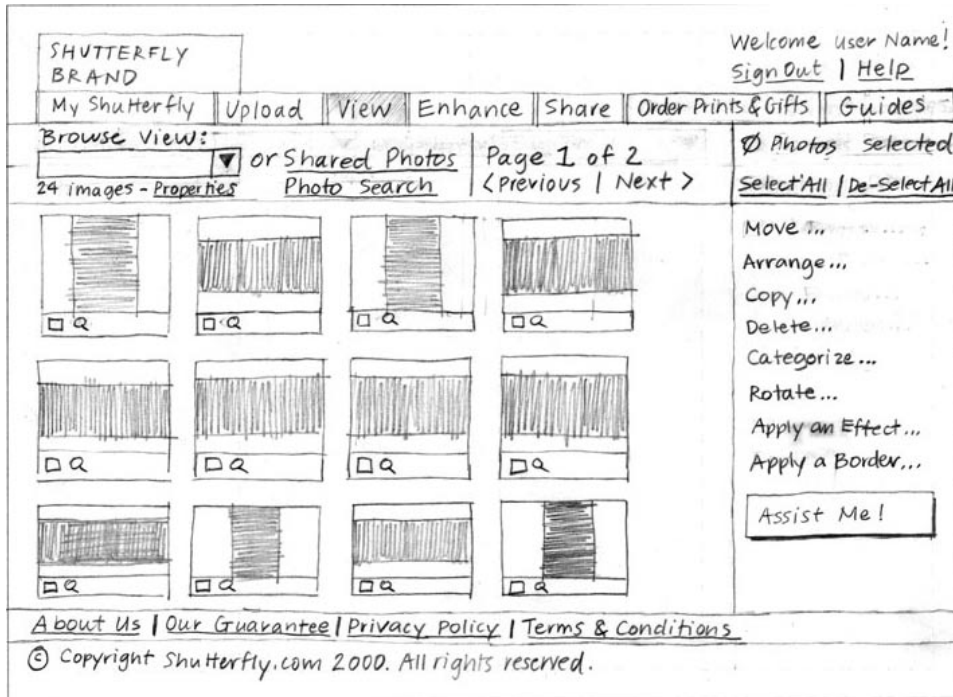 SHUTTERFLY
BRAND
Welcome User Name!
Sign Out | Help
My Shutterfly
Upload
View
Enhance
Share
Order Prints & Gifts
Guides
Browse View:
or Shared Photos
24 images - Properties
Photo Search
Page 1 of 2
< Previous | Next >
0 Photos Selected
Select All | De-Select All
Move...
Arrange...
Copy...
Delete...
Categorize...
Rotate...
Apply an Effect...
Apply a Border...
Assist Me!
About Us | Our Guarantee | Privacy Policy | Terms & Conditions
© Copyright Shutterfly.com 2000. All rights reserved.